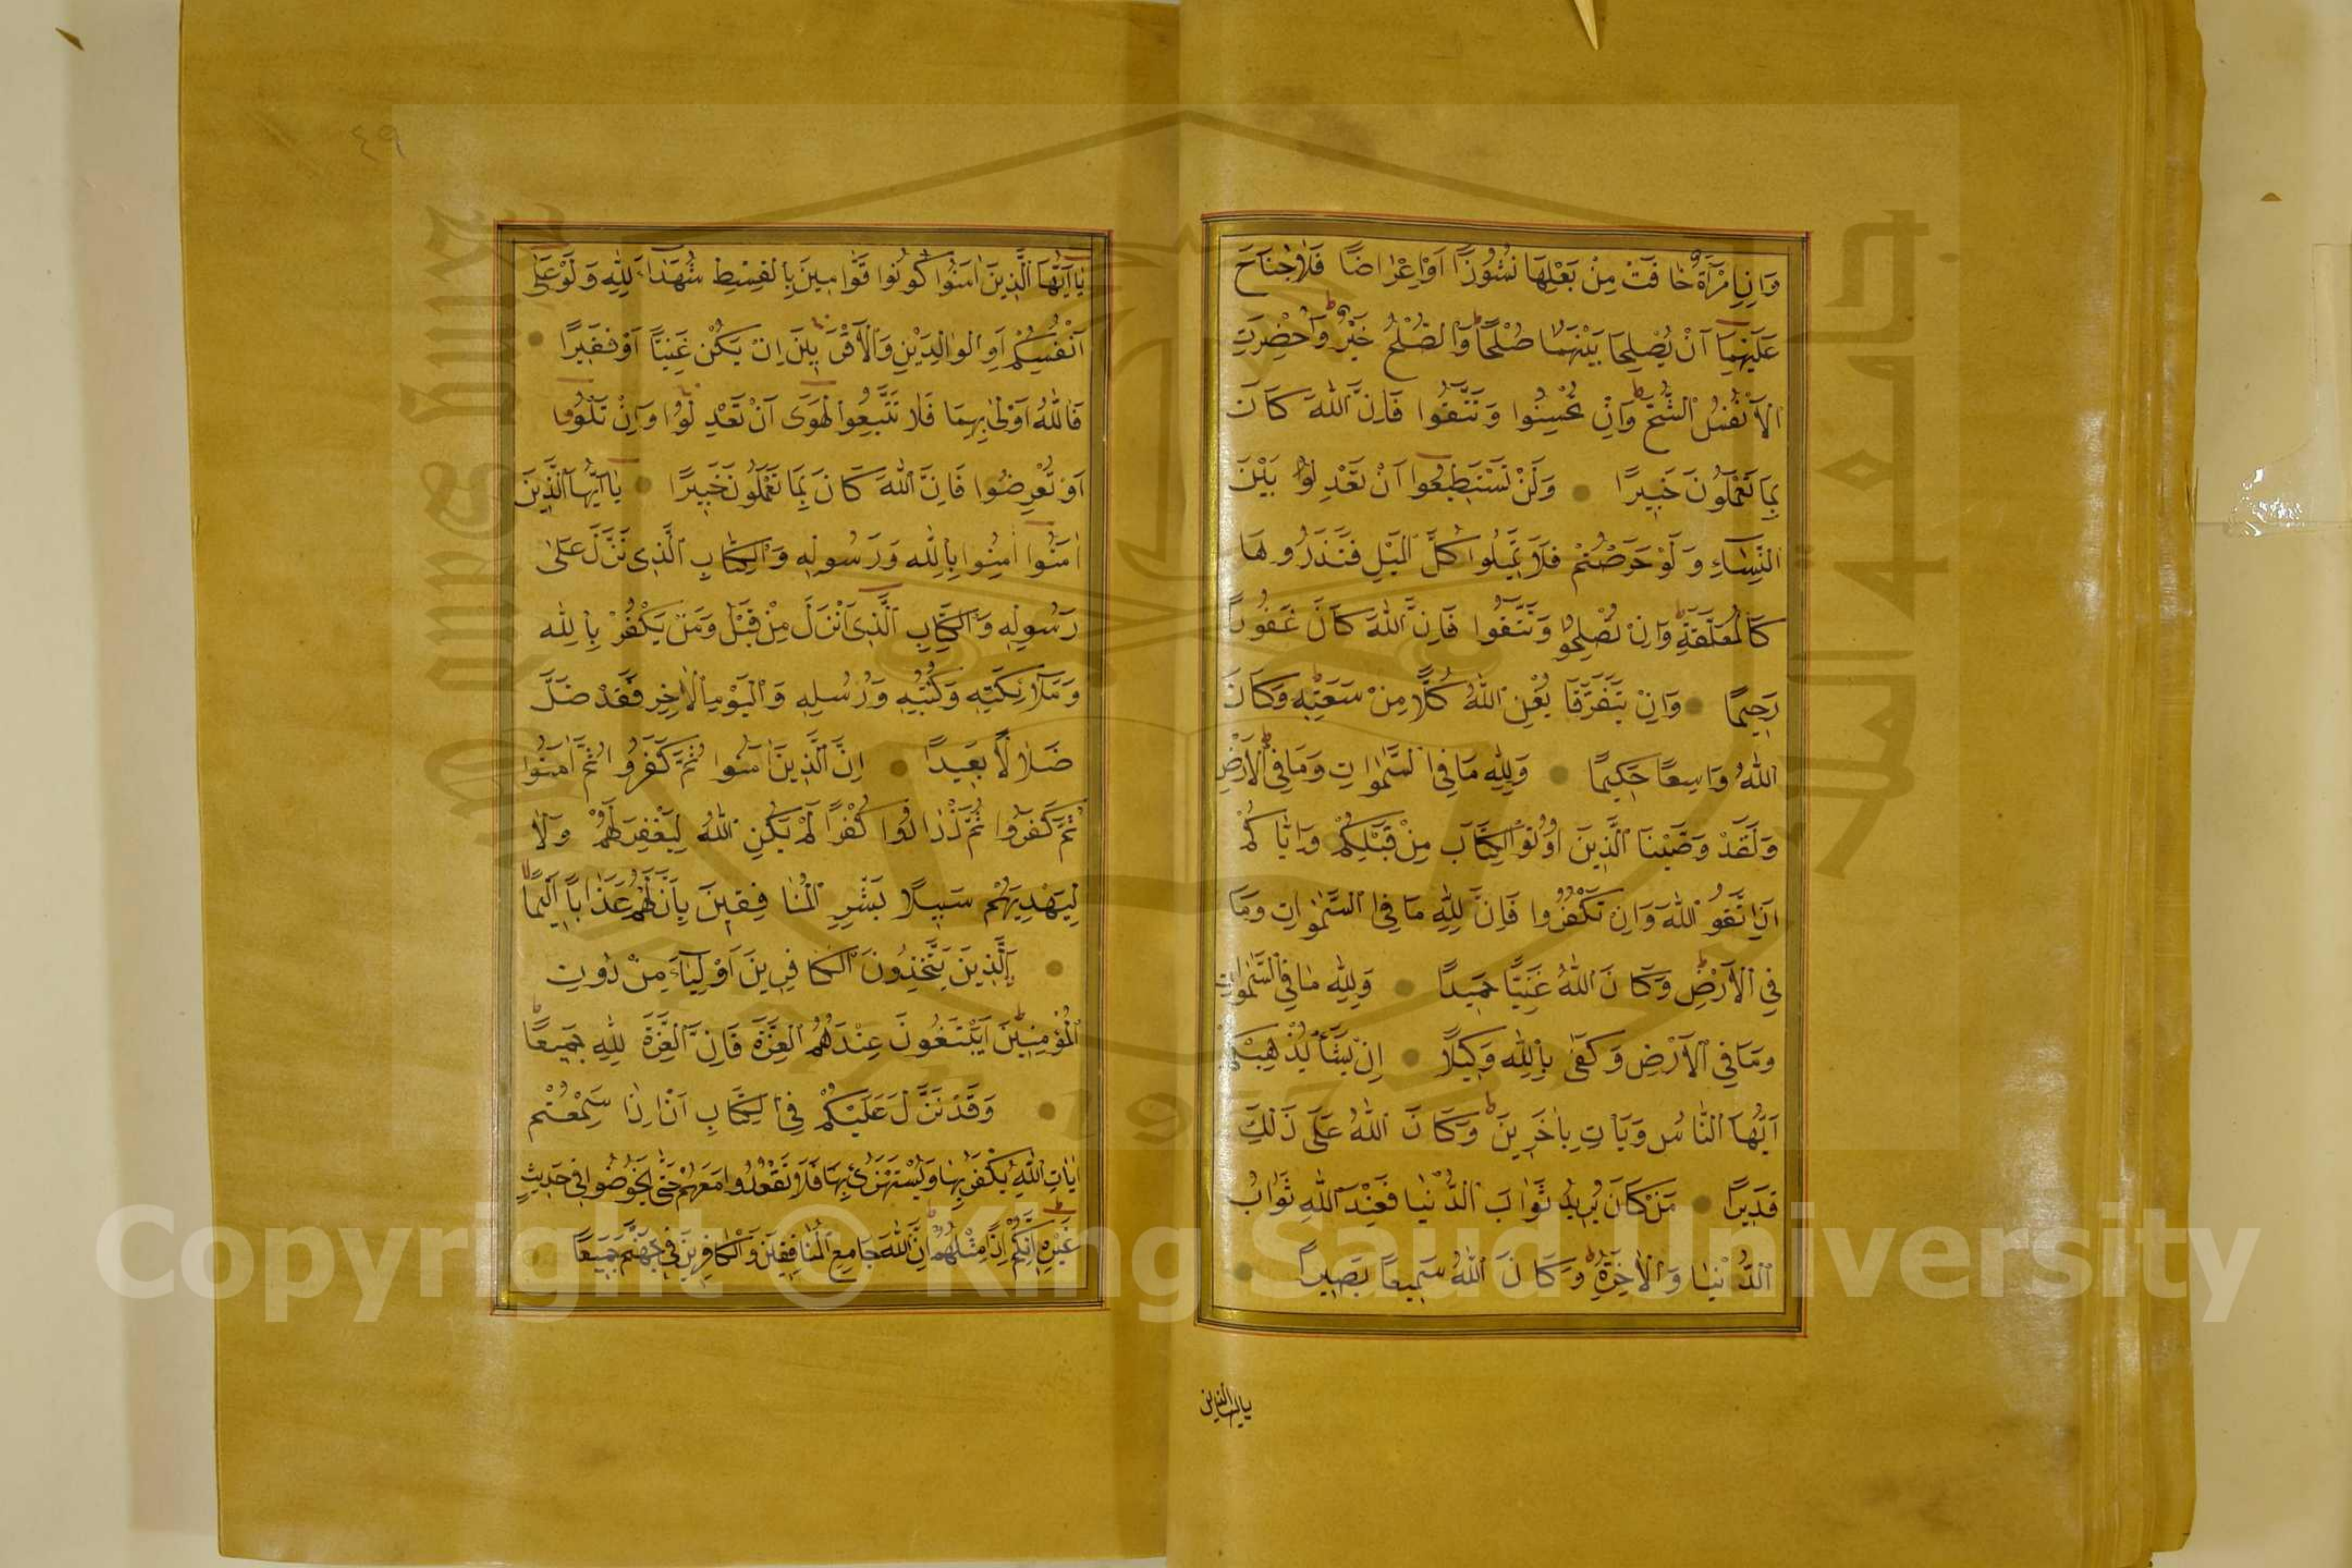 وَاِنِ امْرَاَةٌ خَافَتْ مِنْ بَعْلِهَا نُشُوزًا اَوْ اِعْرَاضًا فَلَا جُنَاحَ
عَلَيْهِمَا اَنْ يُصْلِحَا بَيْنَهُمَا صُلْحًا وَالصُّلْحُ خَيْرٌ وَاُحْضِرَتِ
الْاَنْفُسُ الشُّحَّ وَاِنْ تُحْسِنُوا وَتَتَّقُوا فَاِنَّ اللّٰهَ كَانَ
بِمَا تَعْمَلُونَ خَبِيرًا وَلَنْ تَسْتَطِيعُوا اَنْ تَعْدِلُوا بَيْنَ
النِّسَاءِ وَلَوْ حَرَصْتُمْ فَلَا تَمِيلُوا كُلَّ الْمَيْلِ فَتَذَرُوهَا
كَالْمُعَلَّقَةِ وَاِنْ تُصْلِحُوا وَتَتَّقُوا فَاِنَّ اللّٰهَ كَانَ غَفُورًا
رَحِيمًا وَاِنْ يَتَفَرَّقَا يُغْنِ اللّٰهُ كُلًّا مِنْ سَعَتِهِ وَكَانَ
اللّٰهُ وَاسِعًا حَكِيمًا وَلِلّٰهِ مَا فِي السَّمٰوَاتِ وَمَا فِي الْاَرْضِ
وَلَقَدْ وَصَّيْنَا الَّذِينَ اُوتُوا الْكِتَابَ مِنْ قَبْلِكُمْ وَاِيَّاكُمْ
اَنِ اتَّقُوا اللّٰهَ وَاِنْ تَكْفُرُوا فَاِنَّ لِلّٰهِ مَا فِي السَّمٰوَاتِ وَمَا
فِي الْاَرْضِ وَكَانَ اللّٰهُ غَنِيًّا حَمِيدًا وَلِلّٰهِ مَا فِي السَّمٰوَاتِ
وَمَا فِي الْاَرْضِ وَكَفٰى بِاللّٰهِ وَكِيلًا اِنْ يَشَأْ يُذْهِبْكُمْ
اَيُّهَا النَّاسُ وَيَاْتِ بِاٰخَرِينَ وَكَانَ اللّٰهُ عَلٰى ذٰلِكَ
قَدِيرًا مَنْ كَانَ يُرِيدُ ثَوَابَ الدُّنْيَا فَعِنْدَ اللّٰهِ ثَوَابُ
الدُّنْيَا وَالْاٰخِرَةِ وَكَانَ اللّٰهُ سَمِيعًا بَصِيرًا
ياايها الذين
٤٩
يَا اَيُّهَا الَّذِينَ اٰمَنُوا كُونُوا قَوَّامِينَ بِالْقِسْطِ شُهَدَاءَ لِلّٰهِ وَلَوْ عَلٰى
اَنْفُسِكُمْ اَوِ الْوَالِدَيْنِ وَالْاَقْرَبِينَ اِنْ يَكُنْ غَنِيًّا اَوْ فَقِيرًا
فَاللّٰهُ اَوْلٰى بِهِمَا فَلَا تَتَّبِعُوا الْهَوٰى اَنْ تَعْدِلُوا وَاِنْ تَلْوُوا
اَوْ تُعْرِضُوا فَاِنَّ اللّٰهَ كَانَ بِمَا تَعْمَلُونَ خَبِيرًا يَا اَيُّهَا الَّذِينَ
اٰمَنُوا اٰمِنُوا بِاللّٰهِ وَرَسُولِهِ وَالْكِتَابِ الَّذِي نَزَّلَ عَلٰى
رَسُولِهِ وَالْكِتَابِ الَّذِي اَنْزَلَ مِنْ قَبْلُ وَمَنْ يَكْفُرْ بِاللّٰهِ
وَمَلَائِكَتِهِ وَكُتُبِهِ وَرُسُلِهِ وَالْيَوْمِ الْاٰخِرِ فَقَدْ ضَلَّ
ضَلَالًا بَعِيدًا اِنَّ الَّذِينَ اٰمَنُوا ثُمَّ كَفَرُوا ثُمَّ اٰمَنُوا
ثُمَّ كَفَرُوا ثُمَّ ازْدَادُوا كُفْرًا لَمْ يَكُنِ اللّٰهُ لِيَغْفِرَ لَهُمْ وَلَا
لِيَهْدِيَهُمْ سَبِيلًا بَشِّرِ الْمُنَافِقِينَ بِاَنَّ لَهُمْ عَذَابًا اَلِيمًا
اَلَّذِينَ يَتَّخِذُونَ الْكَافِرِينَ اَوْلِيَاءَ مِنْ دُونِ
الْمُؤْمِنِينَ اَيَبْتَغُونَ عِنْدَهُمُ الْعِزَّةَ فَاِنَّ الْعِزَّةَ لِلّٰهِ جَمِيعًا
وَقَدْ نَزَّلَ عَلَيْكُمْ فِي الْكِتَابِ اَنْ اِذَا سَمِعْتُمْ
اٰيَاتِ اللّٰهِ يُكْفَرُ بِهَا وَيُسْتَهْزَئُ بِهَا فَلَا تَقْعُدُوا مَعَهُمْ حَتّٰى يَخُوضُوا فِي حَدِيثٍ
غَيْرِهِ اِنَّكُمْ اِذًا مِثْلُهُمْ اِنَّ اللّٰهَ جَامِعُ الْمُنَافِقِينَ وَالْكَافِرِينَ فِي جَهَنَّمَ جَمِيعًا
Copyright © King Saud University